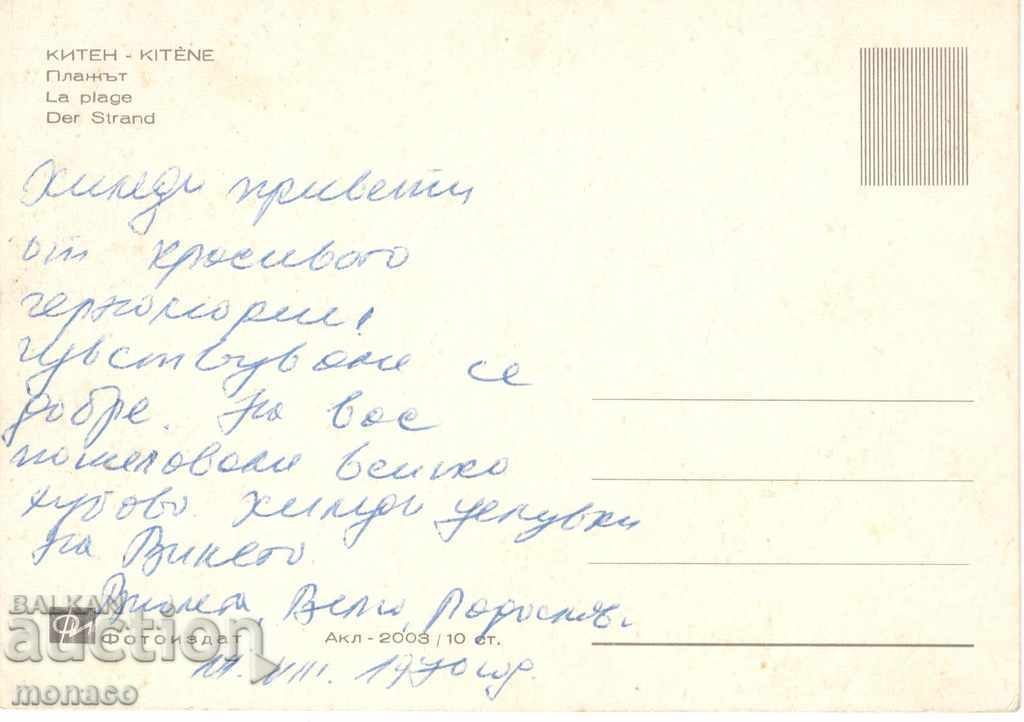 КИТЕН - KITÈNE
Плажът
La plage
Der Strand
Хиляди привети
от красивото
черноморие.
чувствуваме се
добре. На вас
пожелаваме всичко
хубаво. Хиляди целувки
на Викето
Виолета, Вели,
BALKAN
auction
Фотоиздат
Акл-2003/10 ст.
VIII. 1970 год.
monaco